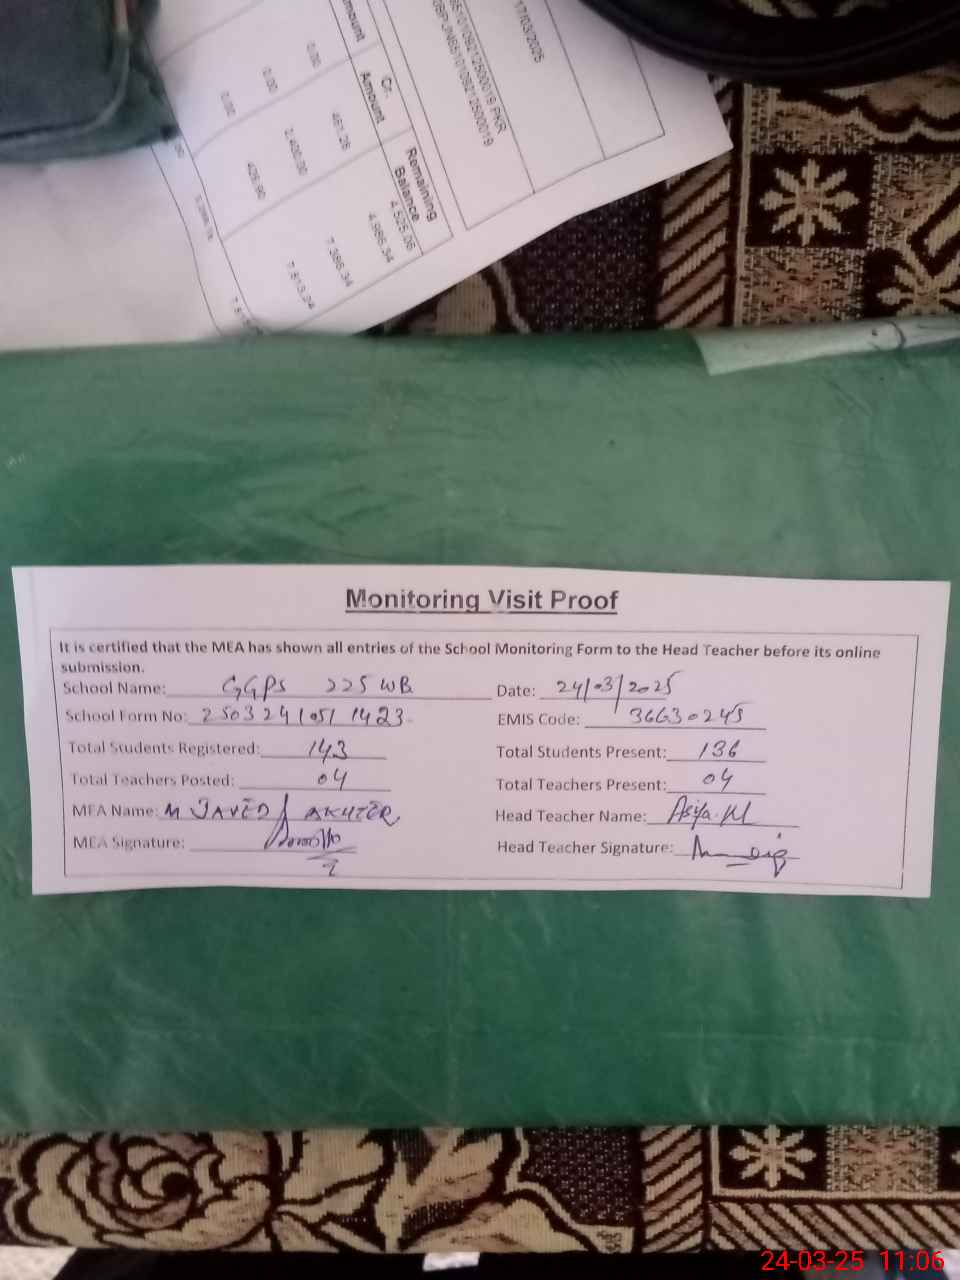 17/03/2025
Cr.
Amount
Remaining
Balance
0.00
461.28
4,525.06
0.00
2,400.00
4,986.34
0.00
426.90
7,386.34
7,813.24
Monitoring Visit Proof
It is certified that the MEA has shown all entries of the School Monitoring Form to the Head Teacher before its online
submission.
School Name: GGPS 225 WB Date: 24/03/2025
School Form No: 2503241051423 EMIS Code: 36630245
Total Students Registered: 143 Total Students Present: 136
Total Teachers Posted: 04 Total Teachers Present: 04
MEA Name: M JAVED AKHTER Head Teacher Name: Asiya
MEA Signature: Head Teacher Signature:
24-03-25 11:06